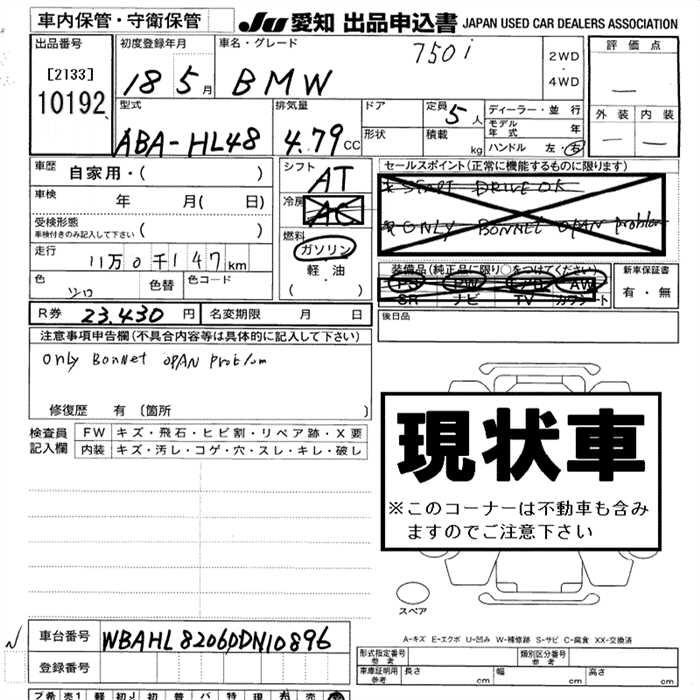 車内保管・守衛保管 Ju 愛知 出品申込書 JAPAN USED CAR DEALERS ASSOCIATION
出品番号 初度登録年月 車名・グレード 750i 2WD ・ 4WD 評価点
[2133] 18 5月 BMW —
10192 型式 排気量 ドア 定員 5人 ディーラー・並行 外装 内装
ABA-HL48 4.79CC 形状 積載 kg モデル年式 年 — —
ハンドル 左・右
車歴 自家用・( ) シフト AT セールスポイント(正常に機能するものに限ります)
車検 年 月( 日) 冷房 AC START DRIVE OK
受検形態 車検付きのみ記入して下さい ( ) 燃料 ONLY BONNET OPAN Problem
走行 11万0千147km ガソリン 装備品(純正品に限り○をつけてください) 新車保証書
色 色替 色コード 軽・油 PS PW AW 有・無
( ・ ) SR ナビ TV カワシート
R券 23.430円 名変期限 月 日 後日品
注意事項申告欄(不具合内容等は具体的に記入して下さい)
Only Bonnet OPAN Problem
修復歴 有 [箇所 ]
検査員記入欄 FW キズ・飛石・ヒビ割・リペア跡・X要
内装 キズ・汚レ・コゲ・穴・スレ・キレ・破レ
現状車
※このコーナーは不動車も含み
ますのでご注意下さい
スペア
A-キズ E-エクボ U-凹み W-補修跡 S-サビ C-腐食 XX-交換済
車台番号 WBAHL82060DN10896 形式指定番号 参考 類別区分番号 参考
登録番号 車庫証明用参考 長さ cm 幅 cm 高さ cm